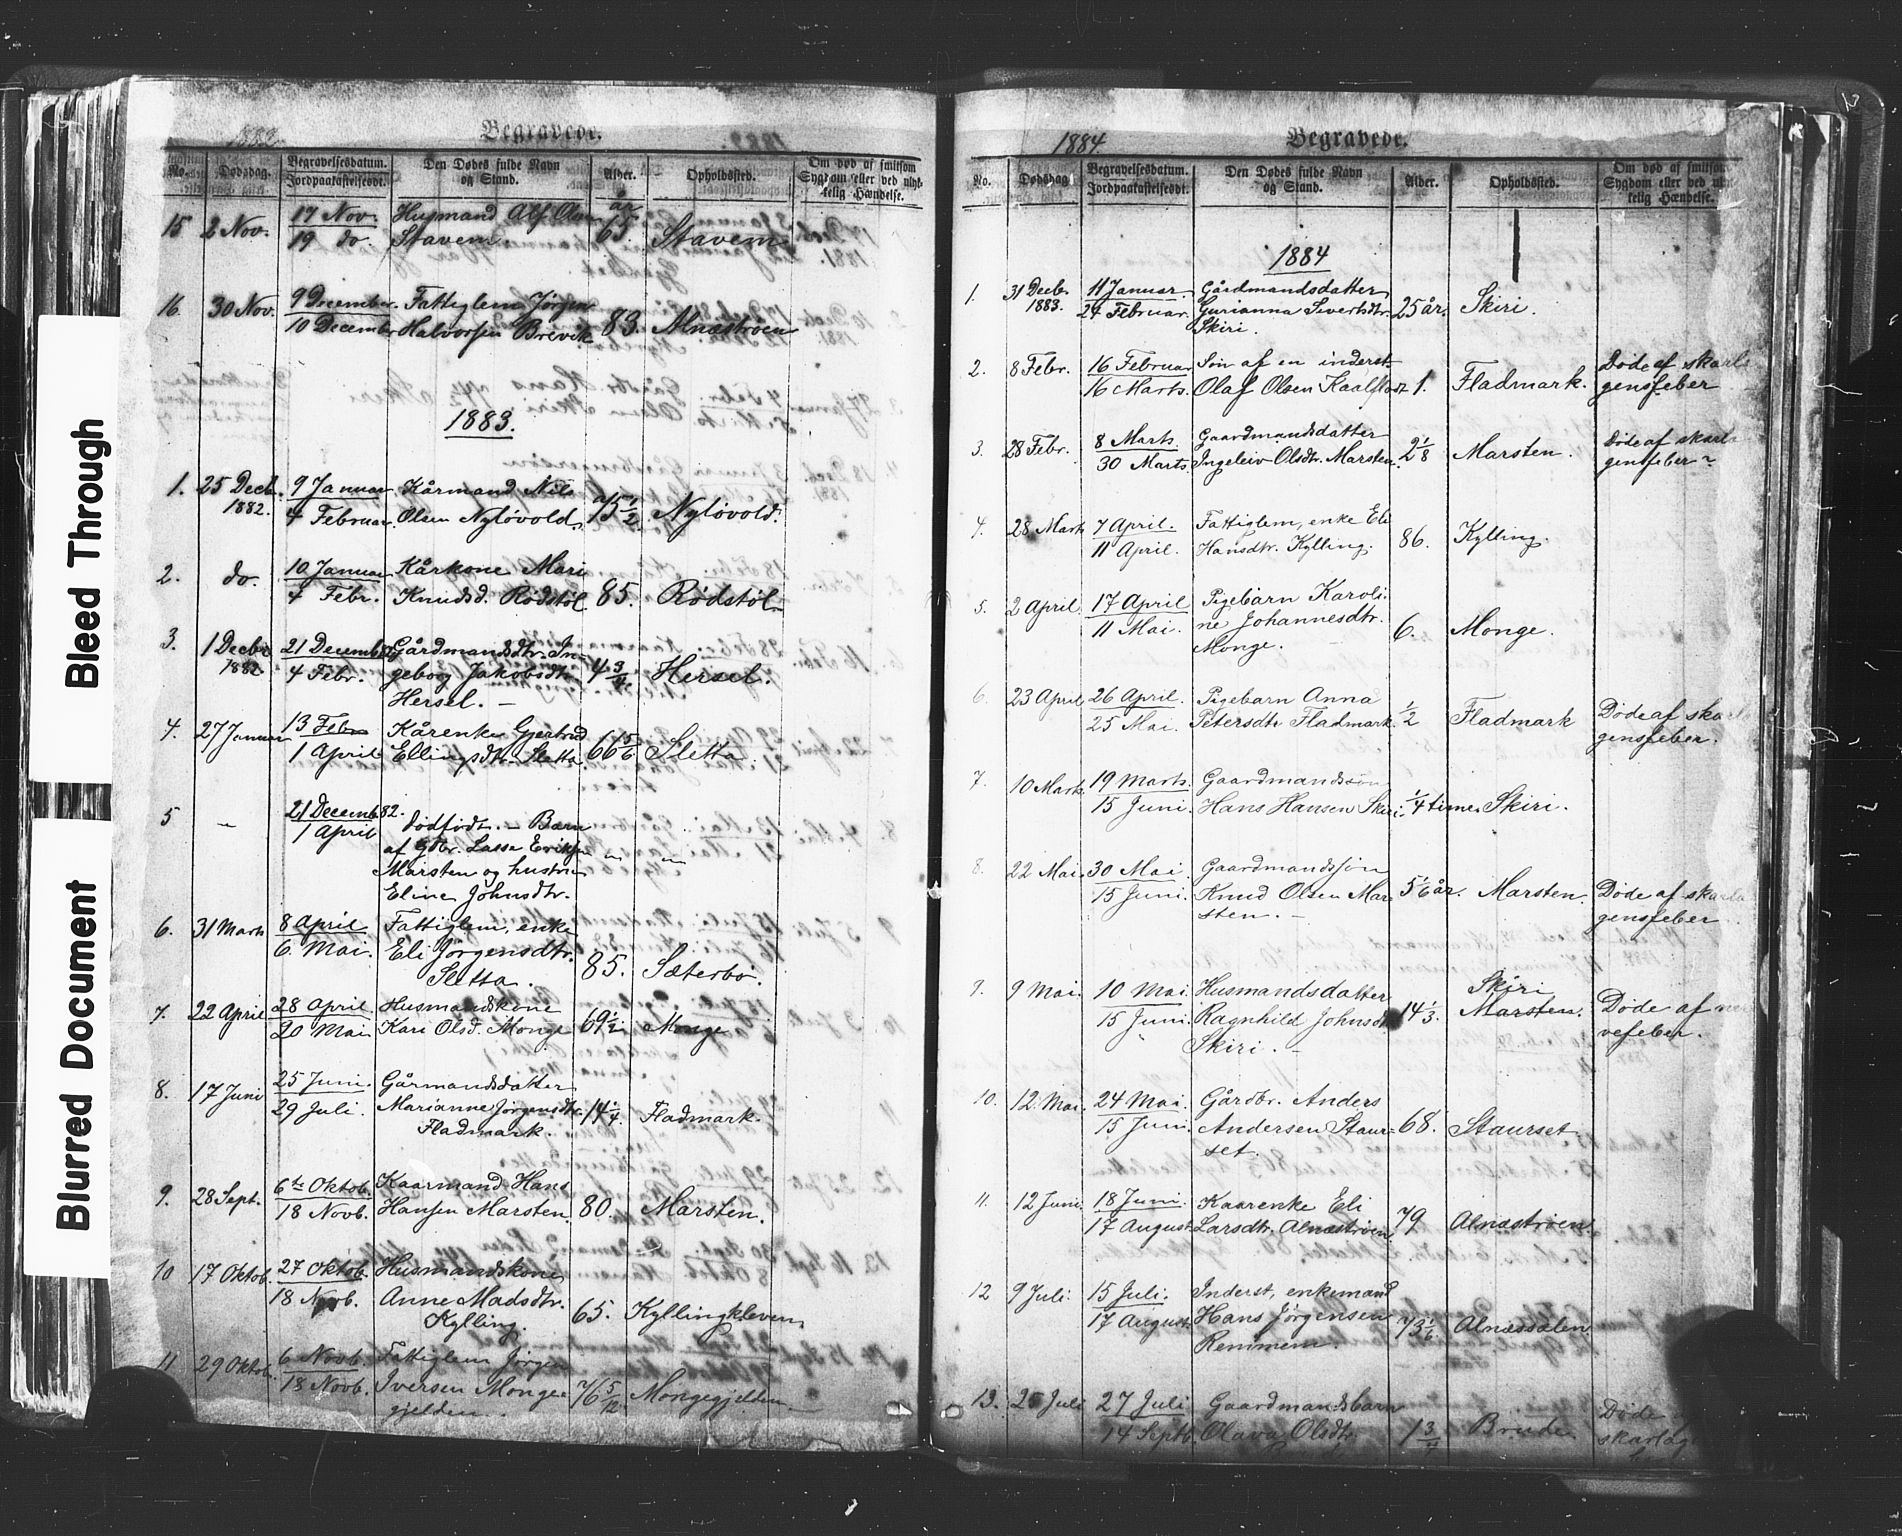 Bleed Through
Blurred Document
1882
Begravede.
No.
Dødsdag.
Begravelsesdatum.
Jordpaakastelsesdt.
Den Dødes fulde Navn
og Stand.
Alder.
Opholdssted.
Om død af smitsom
Sygdom eller ved ulyk-
kelig Hændelse.
15 2 Nov. 17 Nov. Husmand Alf Olsen år
19 do. Stavem 65. Stavem
16. 30 Nov. 9 December Fattiglem Jørgen
10 December Halvorsen Brevik 83. Alnæstrøen
1883.
1. 25 Decb. 9 Januar Kårmand Nils
1882. 4 Februar. Olsen Nyløvold. 75 1/2 Nyløvold.
2. do. 10 Januar Kårkone Mari
4 Febr. Knudsd. Rødstøl 85. Rødstøl
3. 1 Decbr 21 Decemb 82 Gårdmandsdtr. In-
1882 4 Febr. geborg Jakobsdtr 4 3/4. Hersel.
Hersel. —
4. 27 Januar 13 Febr Kårenke Gjertrud
1 April Ellingsdtr. Sletta 66 5/6 Sletta
5 — 21 Decemb. 82.
1 April dødfødt. — Barn
af gdbr. Lasse Eriksen " "
Marsten og hustru
Eline Johnsdtr.
6. 31 Marts 8 April Fattiglem, enke
6. Mai. Eli Jørgensdtr. 85. Sæterbø.
Sletta.
7. 22 April 28 April Husmandskone
20 Mai Kari Olsd. Monge 69 1/2 Monge
8. 17 Juni 25 Juni. Gårmandsdatter
29 Juli. Marianne Jørgensdtr. 14 1/4. Fladmark.
Fladmark.
9. 28 Sept. 6te Oktob. Kaarmand Hans
18 Novb. Hansen Marsten. 80. Marsten.
10 17 Oktob. 27 Oktob. Husmandskone
18 Novb. Anne Madsdtr. 65. Kyllingkleven
Kylling.
11 29 Oktob. 6 Novb. Fattiglem Jørgen
18 Novb. Iversen Monge- 76 5/12. Mongegjelden
gjelden.
1884
Begravede.
No.
Dødsdag
Begravelsesdatum.
Jordpaakastelsesdt.
Den Dødes fulde Navn
og Stand.
Alder.
Opholdssted.
Om død af smitsom
Sygdom eller ved ulyk-
kelig Hændelse.
1884
1. 31 Decbr. 11 Januar. Gårdmandsdatter
1883. 24 Februar. Gurianna Sivertsdtr. 25 år. Skiri.
Skiri.
2. 8 Febr. 16 Februar Søn af en inderst Døde af skarla
16 Marts. Olaf Olsen Kaalstad 1. Fladmark. gensfeber
3. 28 Febr. 8 Marts. Gaardmandsdatter Døde af skarla
30 Marts. Ingeleiv Olsdtr. Marsten. 2 1/8 Marsten. gensfeber
4. 28 Marts 7 April. Fattiglem, enke Eli
11 April. Hansdtr. Kylling. 86. Kylling.
5. 2 April. 17 April Pigebarn Karoli-
11 Mai. ne Johannesdtr. 6. Monge.
Monge.
6. 23 April 26 April. Pigebarn Anna
25 Mai. Petersdtr Fladmark 1/2 Fladmark Døde af skarla
gensfeber.
7. 10 Marts. 19 Marts. Gaardmandssøn
15 Juni. Hans Hansen Skiri. 1/4 time. Skiri.
8. 22 Mai. 30 Mai. Gaardmandssøn
15 Juni. Knud Olsen Mar 5 1/6 år. Marsten. Døde af skarla
sten. — gensfeber
9. 9 Mai. 10 Mai. Husmandsdatter Skiri
15 Juni. Ragnhild Johnsdtr 14 1/3. Marsten. Døde af ner
Skiri. — vefeber.
10. 12. Mai. 24 Mai. Gårdbr. Anders
15 Juni. Andersen Staur- 68. Staurset
set.
11. 12 Juni. 18 Juni. Kaarenke Eli
17 August. Larsdtr. Alnæstrøen 79 Alnæstrøen
12 9 Juli. 15 Juli. Inderst, enkemand
17 August. Hans Jørgensen 73 1/6. Alnæssælen
Remmem.
13. 25 Juli 27 Juli Gaardmandsbarn Døde
14 Septb. Olava Olsdtr. 1 3/4 Brude skarlag